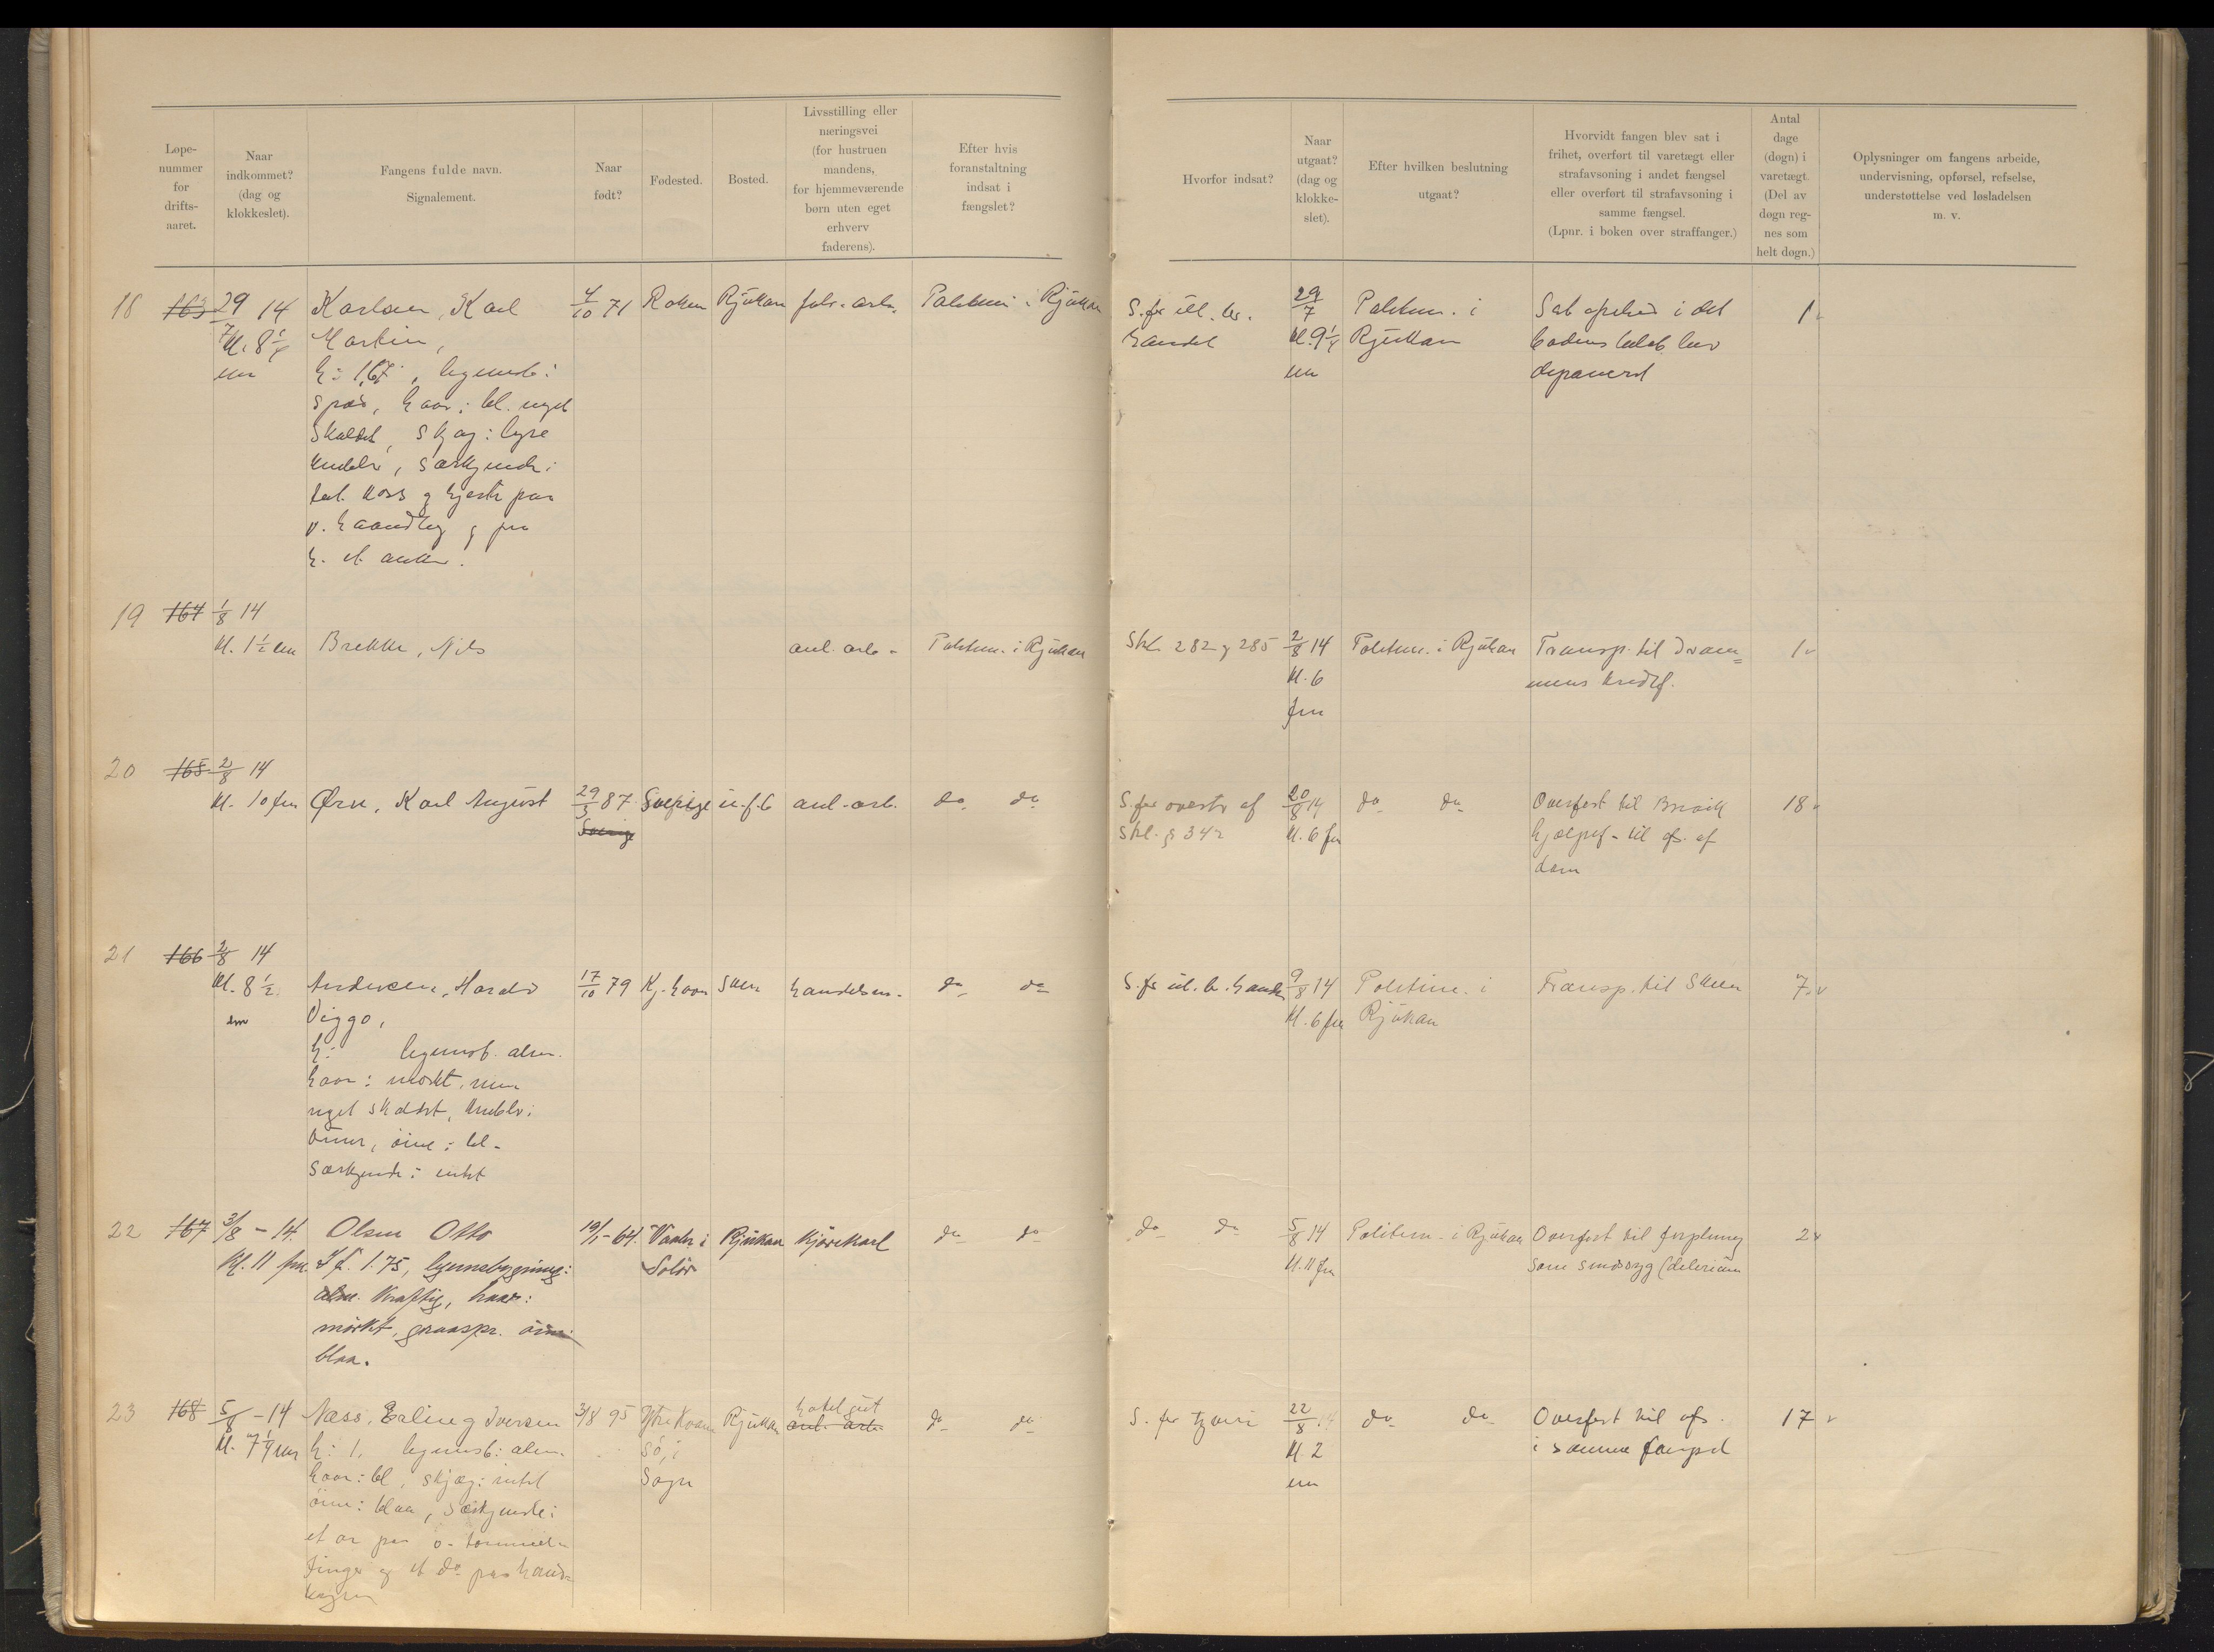 Løpe-
nummer
for
drifts-
aaret.
Naar
indkommet?
(dag og
klokkeslet).
Fangens fulde navn.
Signalement.
Naar
født?
Fødested.
Bosted.
Livsstilling eller
næringsvei
(for hustruen
mandens,
for hjemmeværende
børn uten eget
erhverv
faderens).
Efter hvis
foranstaltning
indsat i
fængslet?
Hvorfor indsat?
Naar
utgaat?
(dag og
klokke-
slet).
Efter hvilken beslutning
utgaat?
Hvorvidt fangen blev sat i
frihet, overført til varetægt eller
strafavsoning i andet fængsel
eller overført til strafavsoning i
samme fængsel.
(Lpnr. i boken over straffanger.)
Antal
dage
(døgn) i
varetægt.
(Del av
døgn reg-
nes som
helt døgn.)
Oplysninger om fangens arbeide,
undervisning, opførsel, refselse,
understøttelse ved løsladelsen
m. v.
18 163 29/7 14 Karlsen, Karl 4/10 71 Røken Rjukan fabr. arb. Politim. i Rjukan
Kl. 8 1/4 Martin,
em h: 1,67, legemsb:
spæd, haar: bl. meget
skaldet, skjæg: lyse
knebler, særkjende:
kors og hjerte paa
v. haandled og paa
h. et anker.
S. for ul. br. 29/7 Politim. i Sat i det 1
handel kl. 9 1/4 Rjukan
em deponert
19 164 1/8 14
Kl. 1 1/2 em Brekke, Nils anl. arb. Politim. i Rjukan
Strl. 282 og 285 2/8 14 Politim. i Rjukan Transp. til Dram= 1
Kl. 6 mens kredsf.
fm
20 165 2/8 14
Kl. 10 fm Ørn, Karl August 29/3 87 Sverige u.f.b anl. arb. do do
Sverige
S. for overtr af 20/8 14 do do Overført til Brevik 18
Strl. § 342 Kl. 6 fm hjælpef. til afs. af
dom
21 166 2/8 14
Kl. 8 1/2 Andersen, Harald 17/10 79 Kj.havn Skien handelsm. do do
em Viggo,
h: legemsb. alm.
haar: mørkt, men
meget skaldet, knebler:
brune, øine: bl.
Særkjende: intet
S. for ul. br. handel 9/8 14 Politim. i Transp. til Skien 7
Kl. 6 fm Rjukan
22 167 3/8 - 14. Olsen Otto 19/1 - 64. Vaaler i Rjukan Kjørekarl do do
Kl. 11 fm. H. 1.75, legemsbygning: Solør
alm. kraftig, haar:
mørkt, graaspr. øine:
blaa.
do do 5/8 14 Politim. i Rjukan Overført til forpleining 2
Kl. 11 fm som sindssyg (delerium
23 168 5/8 - 14 Næss, Erling Iversen 3/8 95 Ytre Rjukan hotelgut do do
anl. arb.
Kl. 7 1/4 em h: 1, legemsb: alm. i
haar: bl, skjæg: intet Sogn
øine: blaa, særkjende:
et ar paa v. tommel-
finger og et do paa hand-
S. for tyveri 22/8 14 do do Overført til afs. 17
Kl. 2 i samme fængsel
em